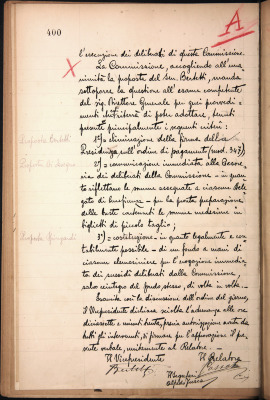 400
A
l'esecuzione dei deliberati di questa Commissione.
La Commissione, accogliendo all'una-
nimità la proposta del Sen. Bedotti, manda
sottoporre la questione all'esame competente
del sig. Direttore Generale per quei provvedi-
menti ch'riterrà di poter adottare, tenuti
presenti principalmente i seguenti criteri:
1°) eliminazione della firma della
Presidenza sull'ordine di pagamento (mod. 347);
2°) comunicazione immediata alla Tesore-
ria dei deliberati della Commissione - in quan-
to riflettano le somme assegnate a ciascun dele-
gato di beneficenza - per la pronta preparazione
delle buste contenenti le somme medesime in
biglietti di piccolo taglio;
3°) costituzione, in quanto legalmente e con-
tabilmente possibile - di un fondo a mani di
ciascun elemosiniere per l'erogazione immedia-
ta dei sussidi deliberati dalla Commissione,
salvo reintegro del fondo stesso, di volta in volta.
Esaurita così la discussione dell'ordine del giorno,
il Vicepresidente dichiara sciolta l'adunanza alle ore
diciassette e minuti trenta, previa autorizzazione avuta da
tutti gli intervenuti, di firmare per l'approvazione il pre-
sente verbale, unitamente al Relatore.
Il Vicepresidente Il Relatore
Il Segretario